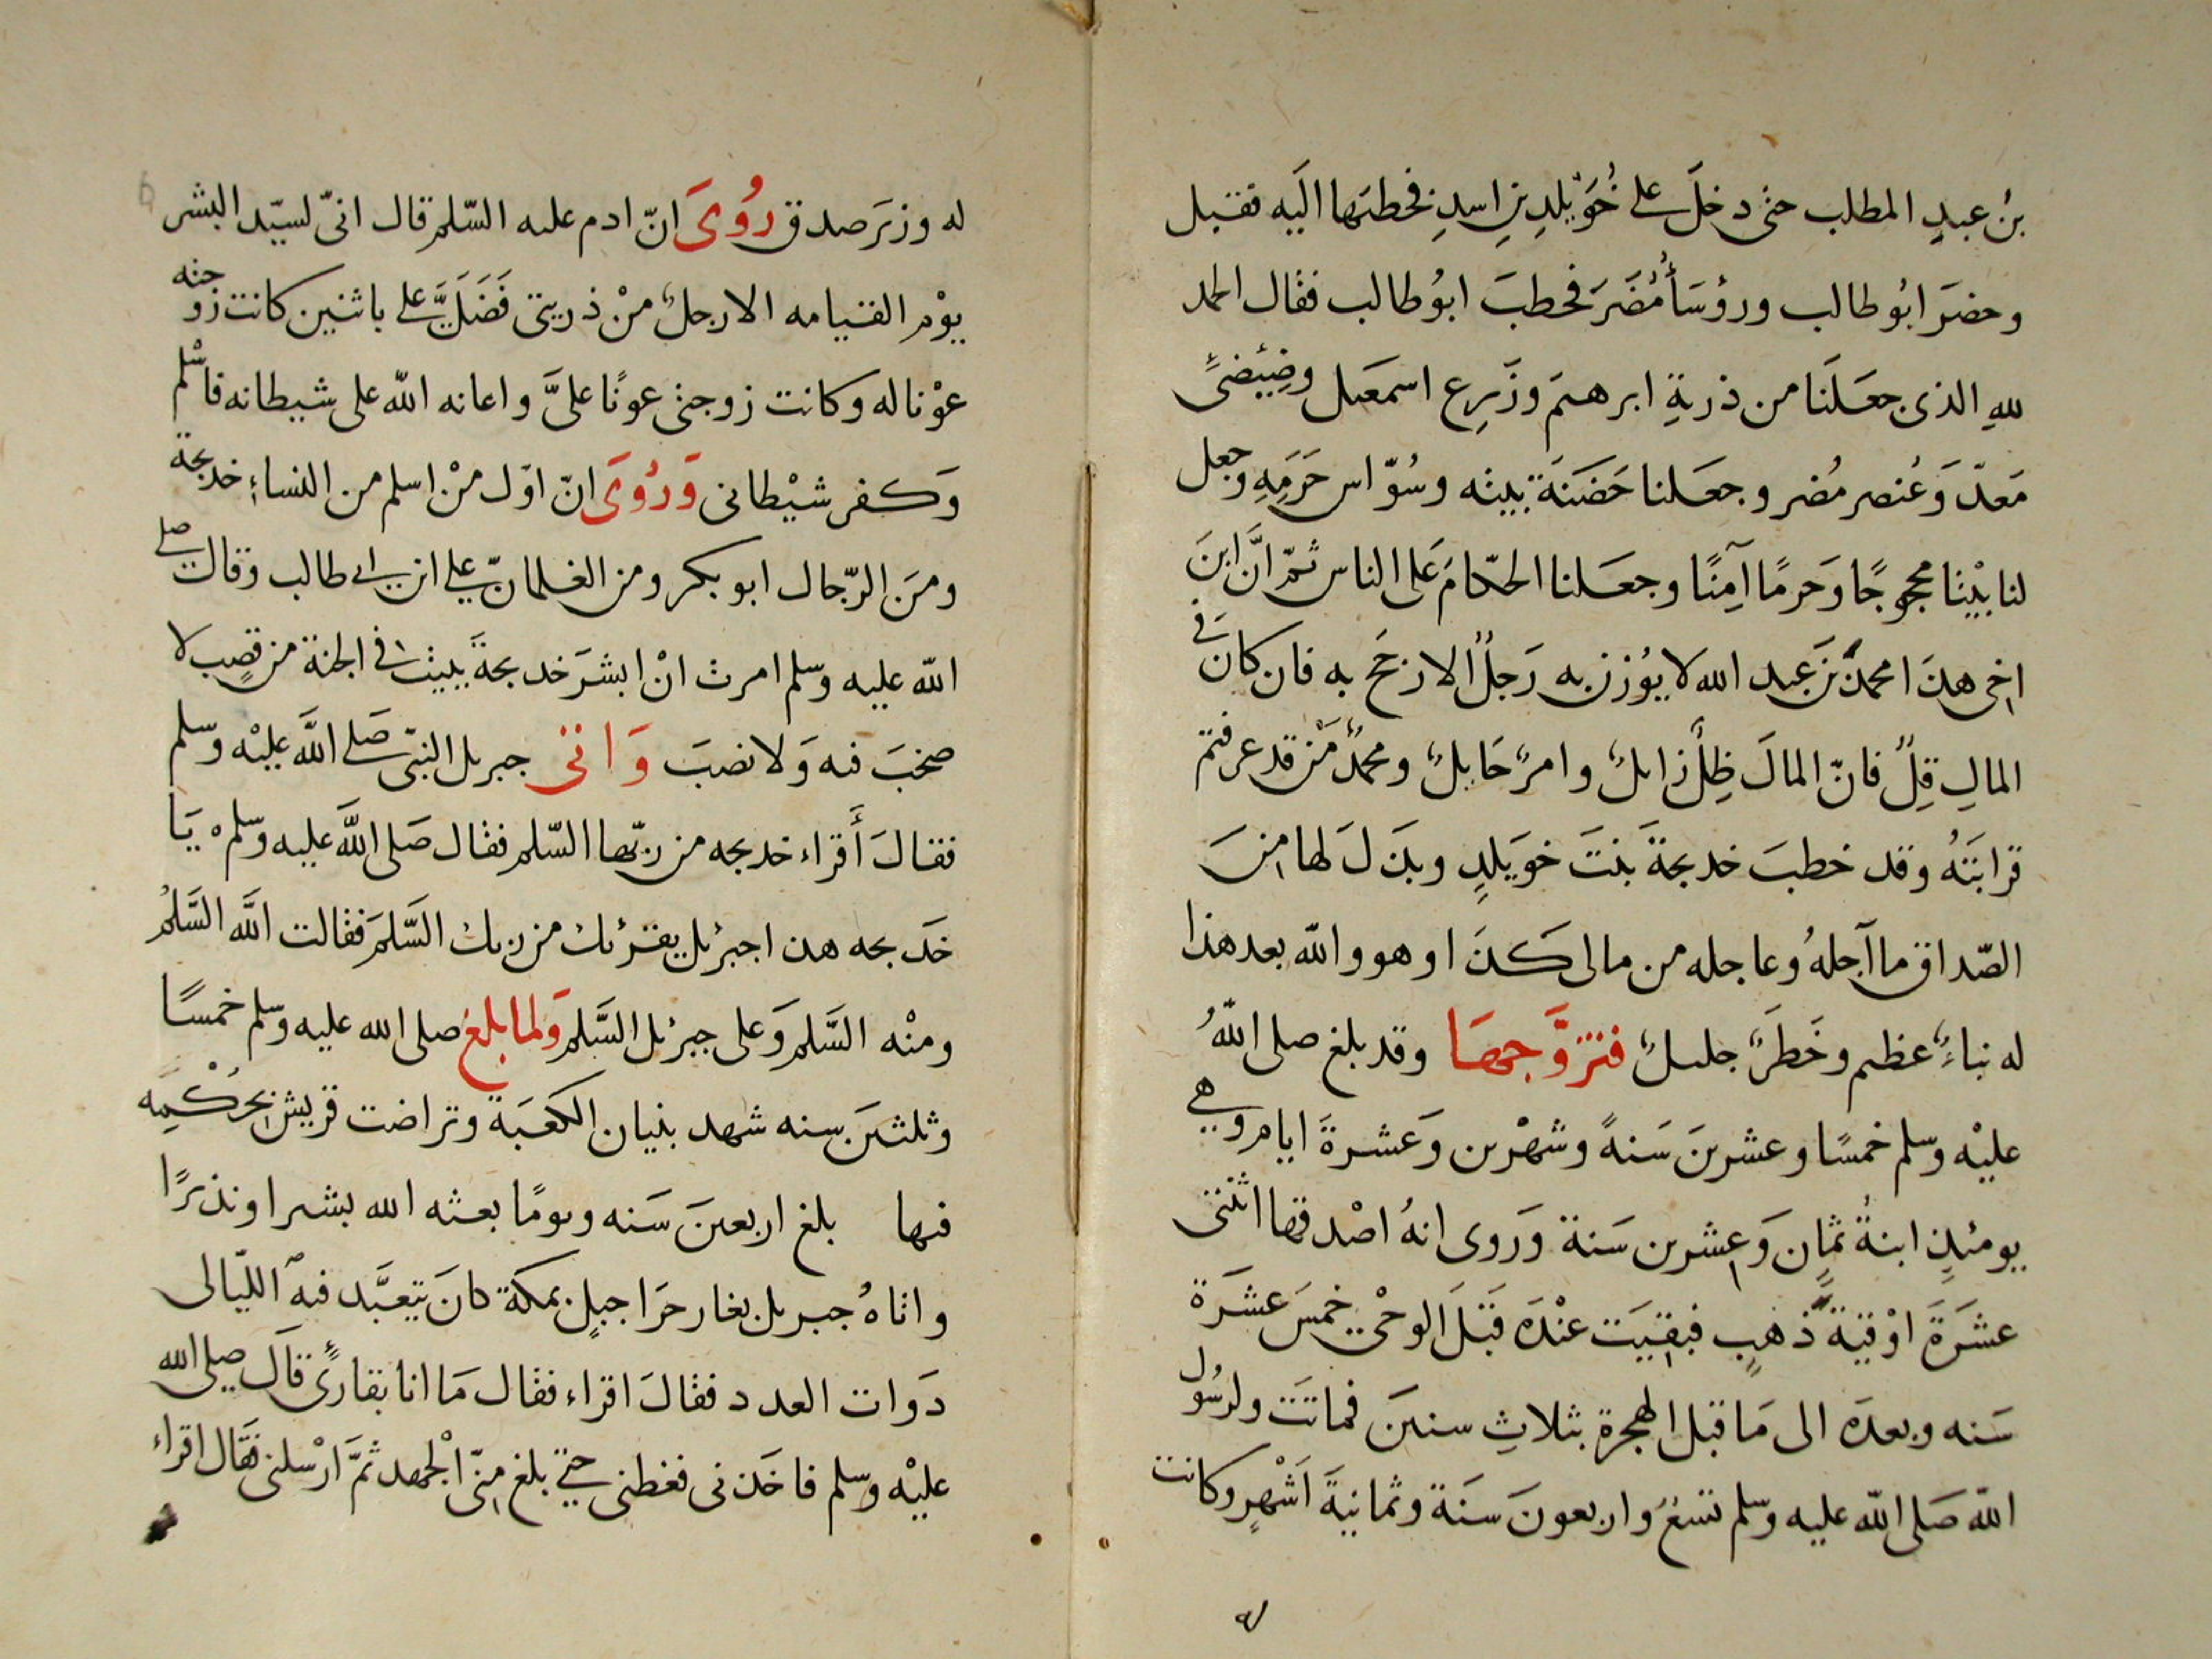 بنُ عبدِ المطلب حتى دخلَ على خُوَيْلدِ بنِ اسدٍ فخطبَها اليَه فقبل
وحضرَ ابُو طالب ورؤسَاُ مُضَرَ فخطبَ ابُو طالب فقال الحمد
للهِ الذى جعَلَنَا من ذريةِ ابرهيمَ وزَرعِ اسمعيل وضِئضئِ
مَعدّ وَعُنصر مُضر وجعَلنا حَضَنَةَ بيته وسُوّاس حَرَمِهِ وجعل
لنا بيْتًا محجوجًا وَحرمًا آمِنًا وجعَلنا الحكّامَ عَلى الناس ثمّ انَّ ابنَ
اخى هذَا محمدُ بنَ عبد الله لا يُوزن به رَجلٌ الا رَجَحَ به فان كانَ فى
المالِ قِلٌ فانّ المالَ ظِلٌ زايلٌ وامرٌ حَايلٌ ومحمدٌ مَنْ قد عرفتم
قرابَتَهُ وقد خطبَ خديجةَ بنتَ خوَيلدٍ وبذَلَ لها مِنَ
الصّداق ما آجلهُ وعاجله من مالى كَذَا وهو والله بعد هذا
له نباءٌ عظيم وخَطَرٌ جليلٌ فتزوَّجهَا وقد بلغ صلى اللهُ
عليْه وسلم خمسًا وعشرينَ سَنةً وشهْرين وَعَشرةَ ايام وهى
يومئذٍ ابنةُ ثمانٍ وَعشرين سَنة وَروى انهُ اصْدقها اثنتى
عشَرَةَ اوْقيةً ذهبٍ فبقيَت عنْدَه قَبْلَ الوحْى خمسَ عشَرَة
سَنه وبعدَه الى مَا قبل الهجرة بثلاثِ سنينَ فماتَتَ ولرسُول
الله صَلى الله عليه وسلم تسعٌ واربعونَ سَنَة وثمانيةَ اَشْهرٍ وكانت
له وزيرَ صدق رُوُىَ انّ ادم عليه السّلم قال انىّ لسيّد البشر
يوْم القيامه الا رجلٌ منْ ذريتى فَضَلَ عَلىَّ باثنين كانت زوجته
عوْنا له وكانت زوجتى عونًا علىَّ واعانه الله على شيطانه فاسْلم
وَكفر شيْطانى وَرُوُىَ انّ اوّل منْ اسلم من النساءِ خديجة
ومنَ الرّجال ابو بكر ومن الغلمان علىّ ابن ابى طالب وقال صلى
الله عليه وسلم امرت انْ ابشرَ خديجةَ ببيت فى الجنة من قصبٍ لا
صخبَ فيه وَلا نصبَ وَاتى جبريل النبىّ صَلى اللهَّ عليْه وسلم
فقالَ أَقراء خديجه من ربّها السّلم فقال صَلى اللهَّ عليه وسلم يَا
خَديجه هذا جبرئيل يقرئك من ربك السَّلمَ فقالت اللهَّ السَّلمُ
ومنْه السَّلم وَعلى جبرئيل السَّلم وَلما بلغَ صلى الله عليه وسلم خمسًا
وثلثينَ سنه شهد بنيان الكعبَة وتراضت قريش بحُكْمِه
فيها بلغ اربعينَ سَنه ويومًا بعثه الله بشيرا ونذيرًا
واتاهُ جبريل بغار حرَا جبلٍ بمكَة كانَ يتعبَّد فيه الليّالى
دَوات العدد فقالَ اقراء فقال مَا انا بقارئٍ قالَ صلى الله
عليْه وسلم فاخَذنى فغطنى حتى بلغ مِنّى الْجهد ثمَّ ارْسلنى فقال اقراء